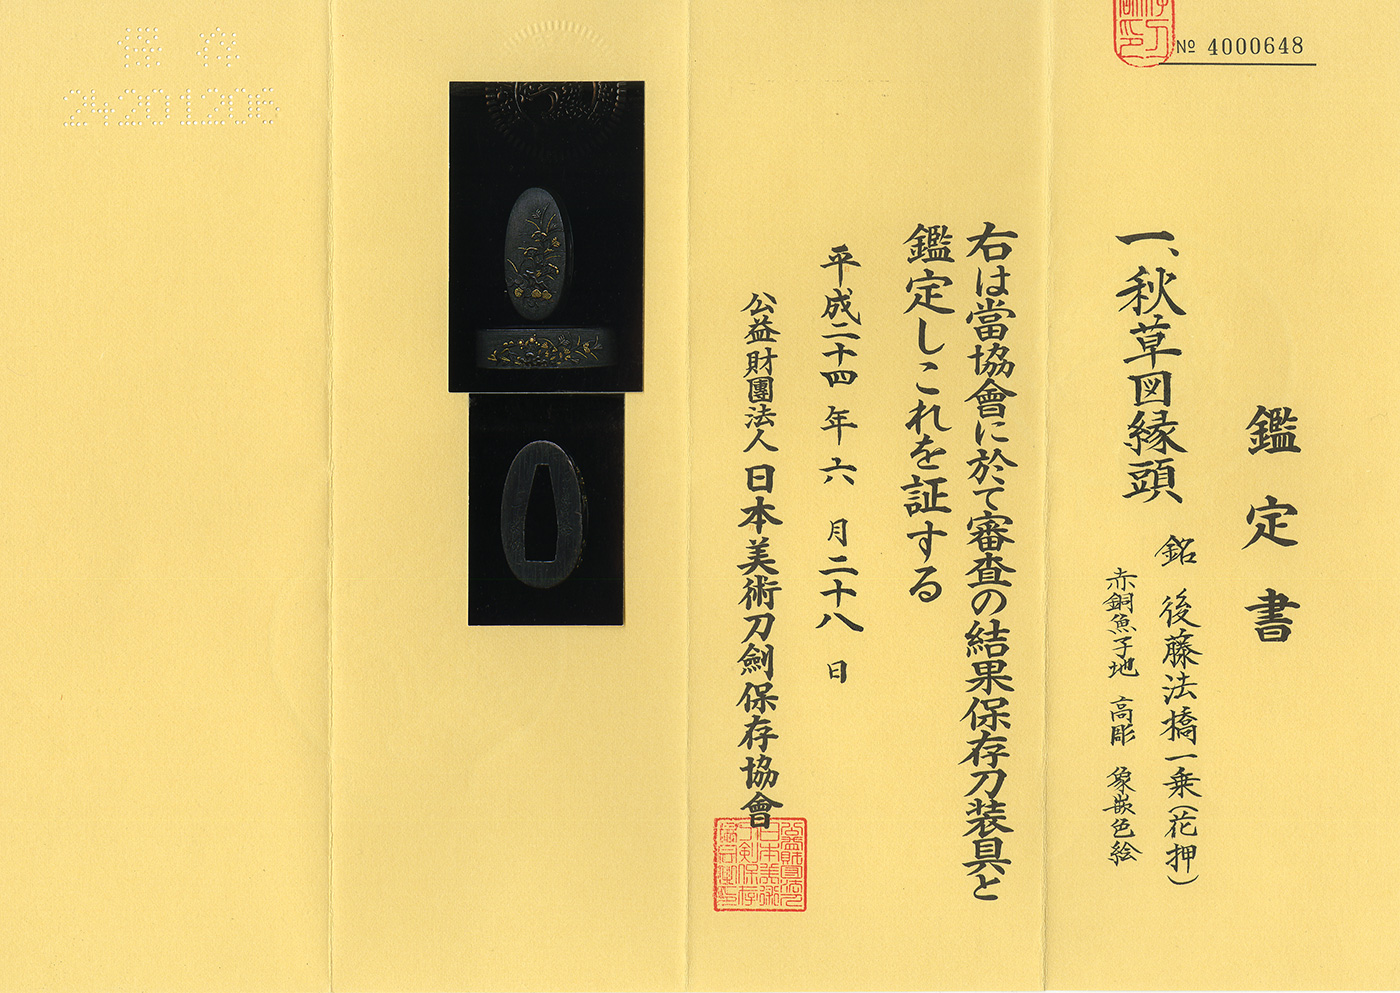 № 4000648
鑑定書
一、秋草図縁頭
銘 後藤法橋一乗(花押)
赤銅魚子地 高彫 象嵌色絵
右は當協會に於て審査の結果保存刀装具と
鑑定しこれを証する
平成二十四年六月二十八日
公益財團法人 日本美術刀劍保存協會
保存
24201206